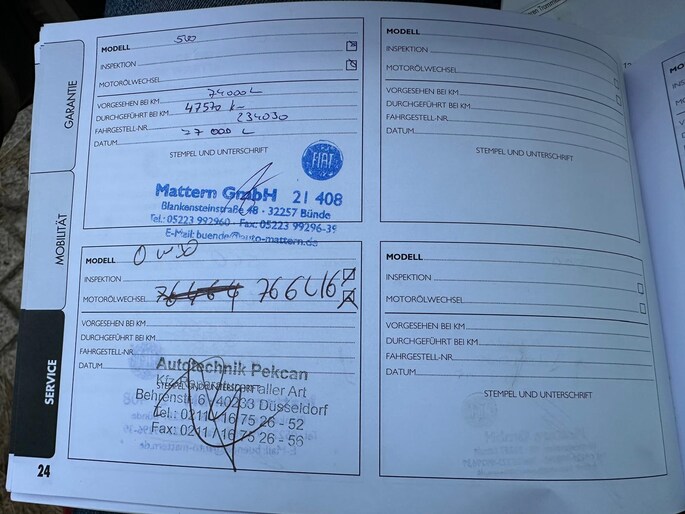 GARANTIE
MOBILITÄT
SERVICE
24
MODELL 500
INSPEKTION
MOTORÖLWECHSEL
VORGESEHEN BEI KM
DURCHGEFÜHRT BEI KM 47570
FAHRGESTELL-NR. 234030
DATUM
STEMPEL UND UNTERSCHRIFT
FIAT
Mattern GmbH 21 408
Blankensteinstraße 48 · 32257 Bünde
Tel.: 05223 992960 · Fax: 05223 99296-39
E-Mail: buende@auto-mattern.de
MODELL 0W30
INSPEKTION
MOTORÖLWECHSEL 766416
VORGESEHEN BEI KM
DURCHGEFÜHRT BEI KM
FAHRGESTELL-NR.
DATUM
Autotechnik Pekcan
STEMPEL UND UNTERSCHRIFT
aller Art
Behrenstr. 6 · 40233 Düsseldorf
Tel.: 0211 / 16 75 26 - 52
Fax: 0211 / 16 75 26 - 56
MODELL
INSPEKTION
MOTORÖLWECHSEL
VORGESEHEN BEI KM
DURCHGEFÜHRT BEI KM
FAHRGESTELL-NR.
DATUM
STEMPEL UND UNTERSCHRIFT
MODELL
INSPEKTION
MOTORÖLWECHSEL
VORGESEHEN BEI KM
DURCHGEFÜHRT BEI KM
FAHRGESTELL-NR.
DATUM
STEMPEL UND UNTERSCHRIFT